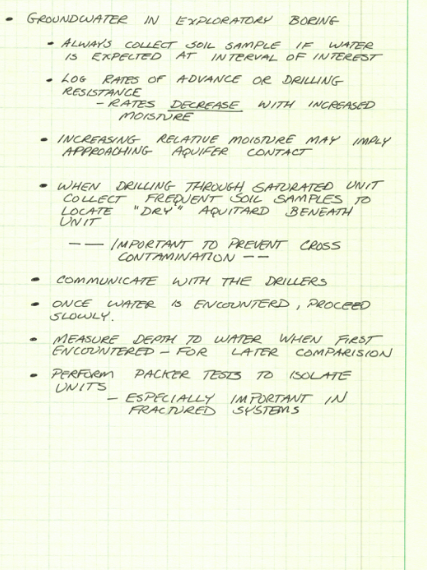 • GROUNDWATER IN EXPLORATORY BORING
• ALWAYS COLLECT SOIL SAMPLE IF WATER
IS EXPECTED AT INTERVAL OF INTEREST
• LOG RATES OF ADVANCE OR DRILLING
RESISTANCE
- RATES DECREASE WITH INCREASED
MOISTURE
• INCREASING RELATIVE MOISTURE MAY IMPLY
APPROACHING AQUIFER CONTACT
• WHEN DRILLING THROUGH SATURATED UNIT
COLLECT FREQUENT SOIL SAMPLES TO
LOCATE "DRY" AQUITARD BENEATH
UNIT
—— IMPORTANT TO PREVENT CROSS
CONTAMINATION ——
• COMMUNICATE WITH THE DRILLERS
• ONCE WATER IS ENCOUNTERD, PROCEED
SLOWLY.
• MEASURE DEPTH TO WATER WHEN FIRST
ENCOUNTERED - FOR LATER COMPARISION
• PERFORM PACKER TESTS TO ISOLATE
UNITS
- ESPECIALLY IMPORTANT IN
FRACTURED SYSTEMS